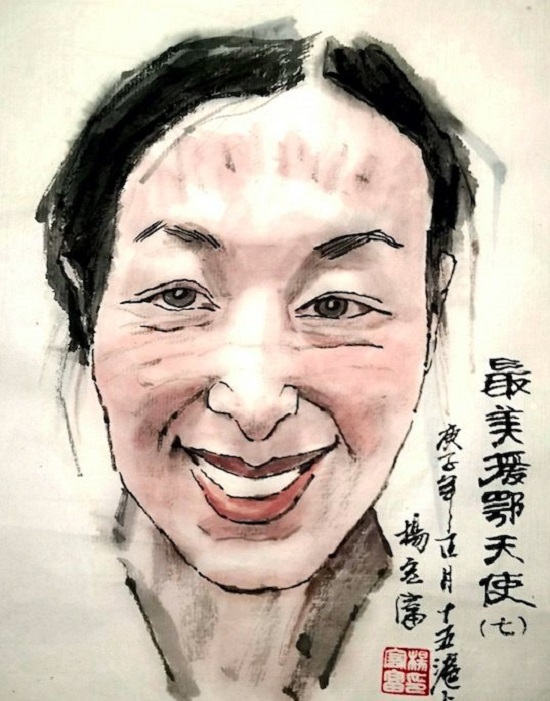 最美援鄂天使
(七)
庚子年正月十五滬上
楊宏富